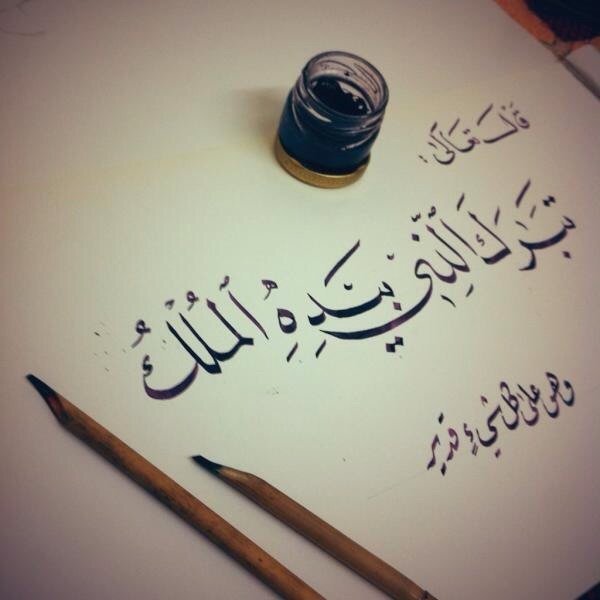 قَالَ تَعَالَىٰ:
تَبَٰرَكَ ٱلَّذِي بِيَدِهِ ٱلْمُلْكُ
وهو على كل شيءٍ قدير